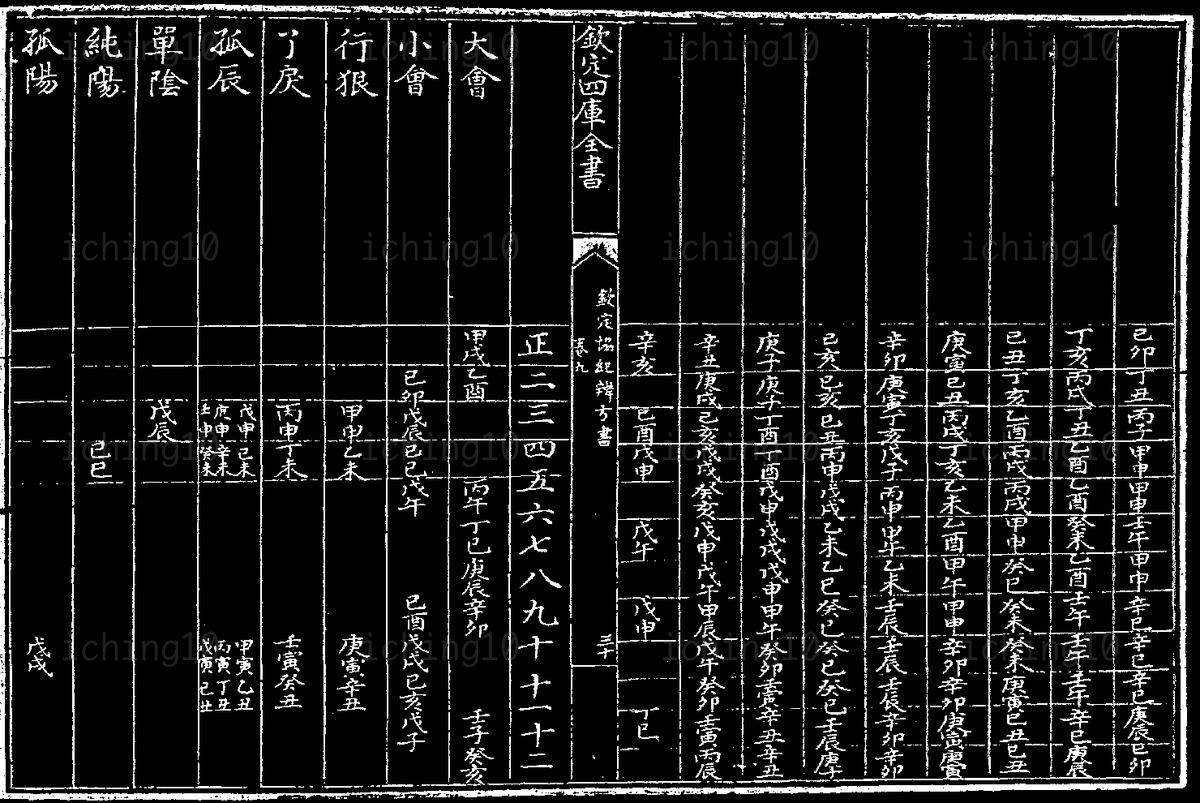 己卯丁丑丙子甲申甲申壬午甲申辛巳辛巳辛巳庚辰己卯
丁亥丙戌丁丑乙酉乙酉癸未乙酉壬午壬午壬午辛巳庚辰
己丑丁亥乙酉丙戌丙戌甲申癸巳癸未癸未庚寅己丑己丑
庚寅己丑丙戌丁亥乙未乙酉甲午甲申辛卯辛卯庚寅庚寅
辛卯庚寅丁亥戊子丙申甲午乙未壬辰壬辰壬辰辛卯辛卯
己亥己亥己丑丙申戊戌乙未乙巳癸巳癸巳癸巳壬辰庚子
庚子庚子丁酉丁酉戊申戊戌戊申甲午癸卯壬寅辛丑辛丑
辛丑庚戌己亥戊戌癸亥戊申戊午甲辰戊午癸卯壬寅丙辰
辛亥 己酉戊申 戊午 戊申 丁巳
欽定四庫全書
欽定協紀辨方書
卷九
三十
正二三四五六七八九十十一十二
大會 甲戌乙酉 丙午丁巳庚辰辛卯 壬子癸亥
小會 己卯戊辰己巳戊午 己酉戊戌己亥戊子
行狠 甲申乙未 庚寅辛丑
了戾 丙申丁未 壬寅癸丑
孤辰 戊申己未 甲寅乙丑
庚申辛未 丙寅丁丑
壬申癸未 戊寅己丑
單陰 戊辰
純陽 己巳
孤陽 戊戌
iching10 iching10 iching10 iching10
iching10 iching10 iching10 iching10
iching10 iching10 iching10 iching10
iching10 iching10 iching10 iching10